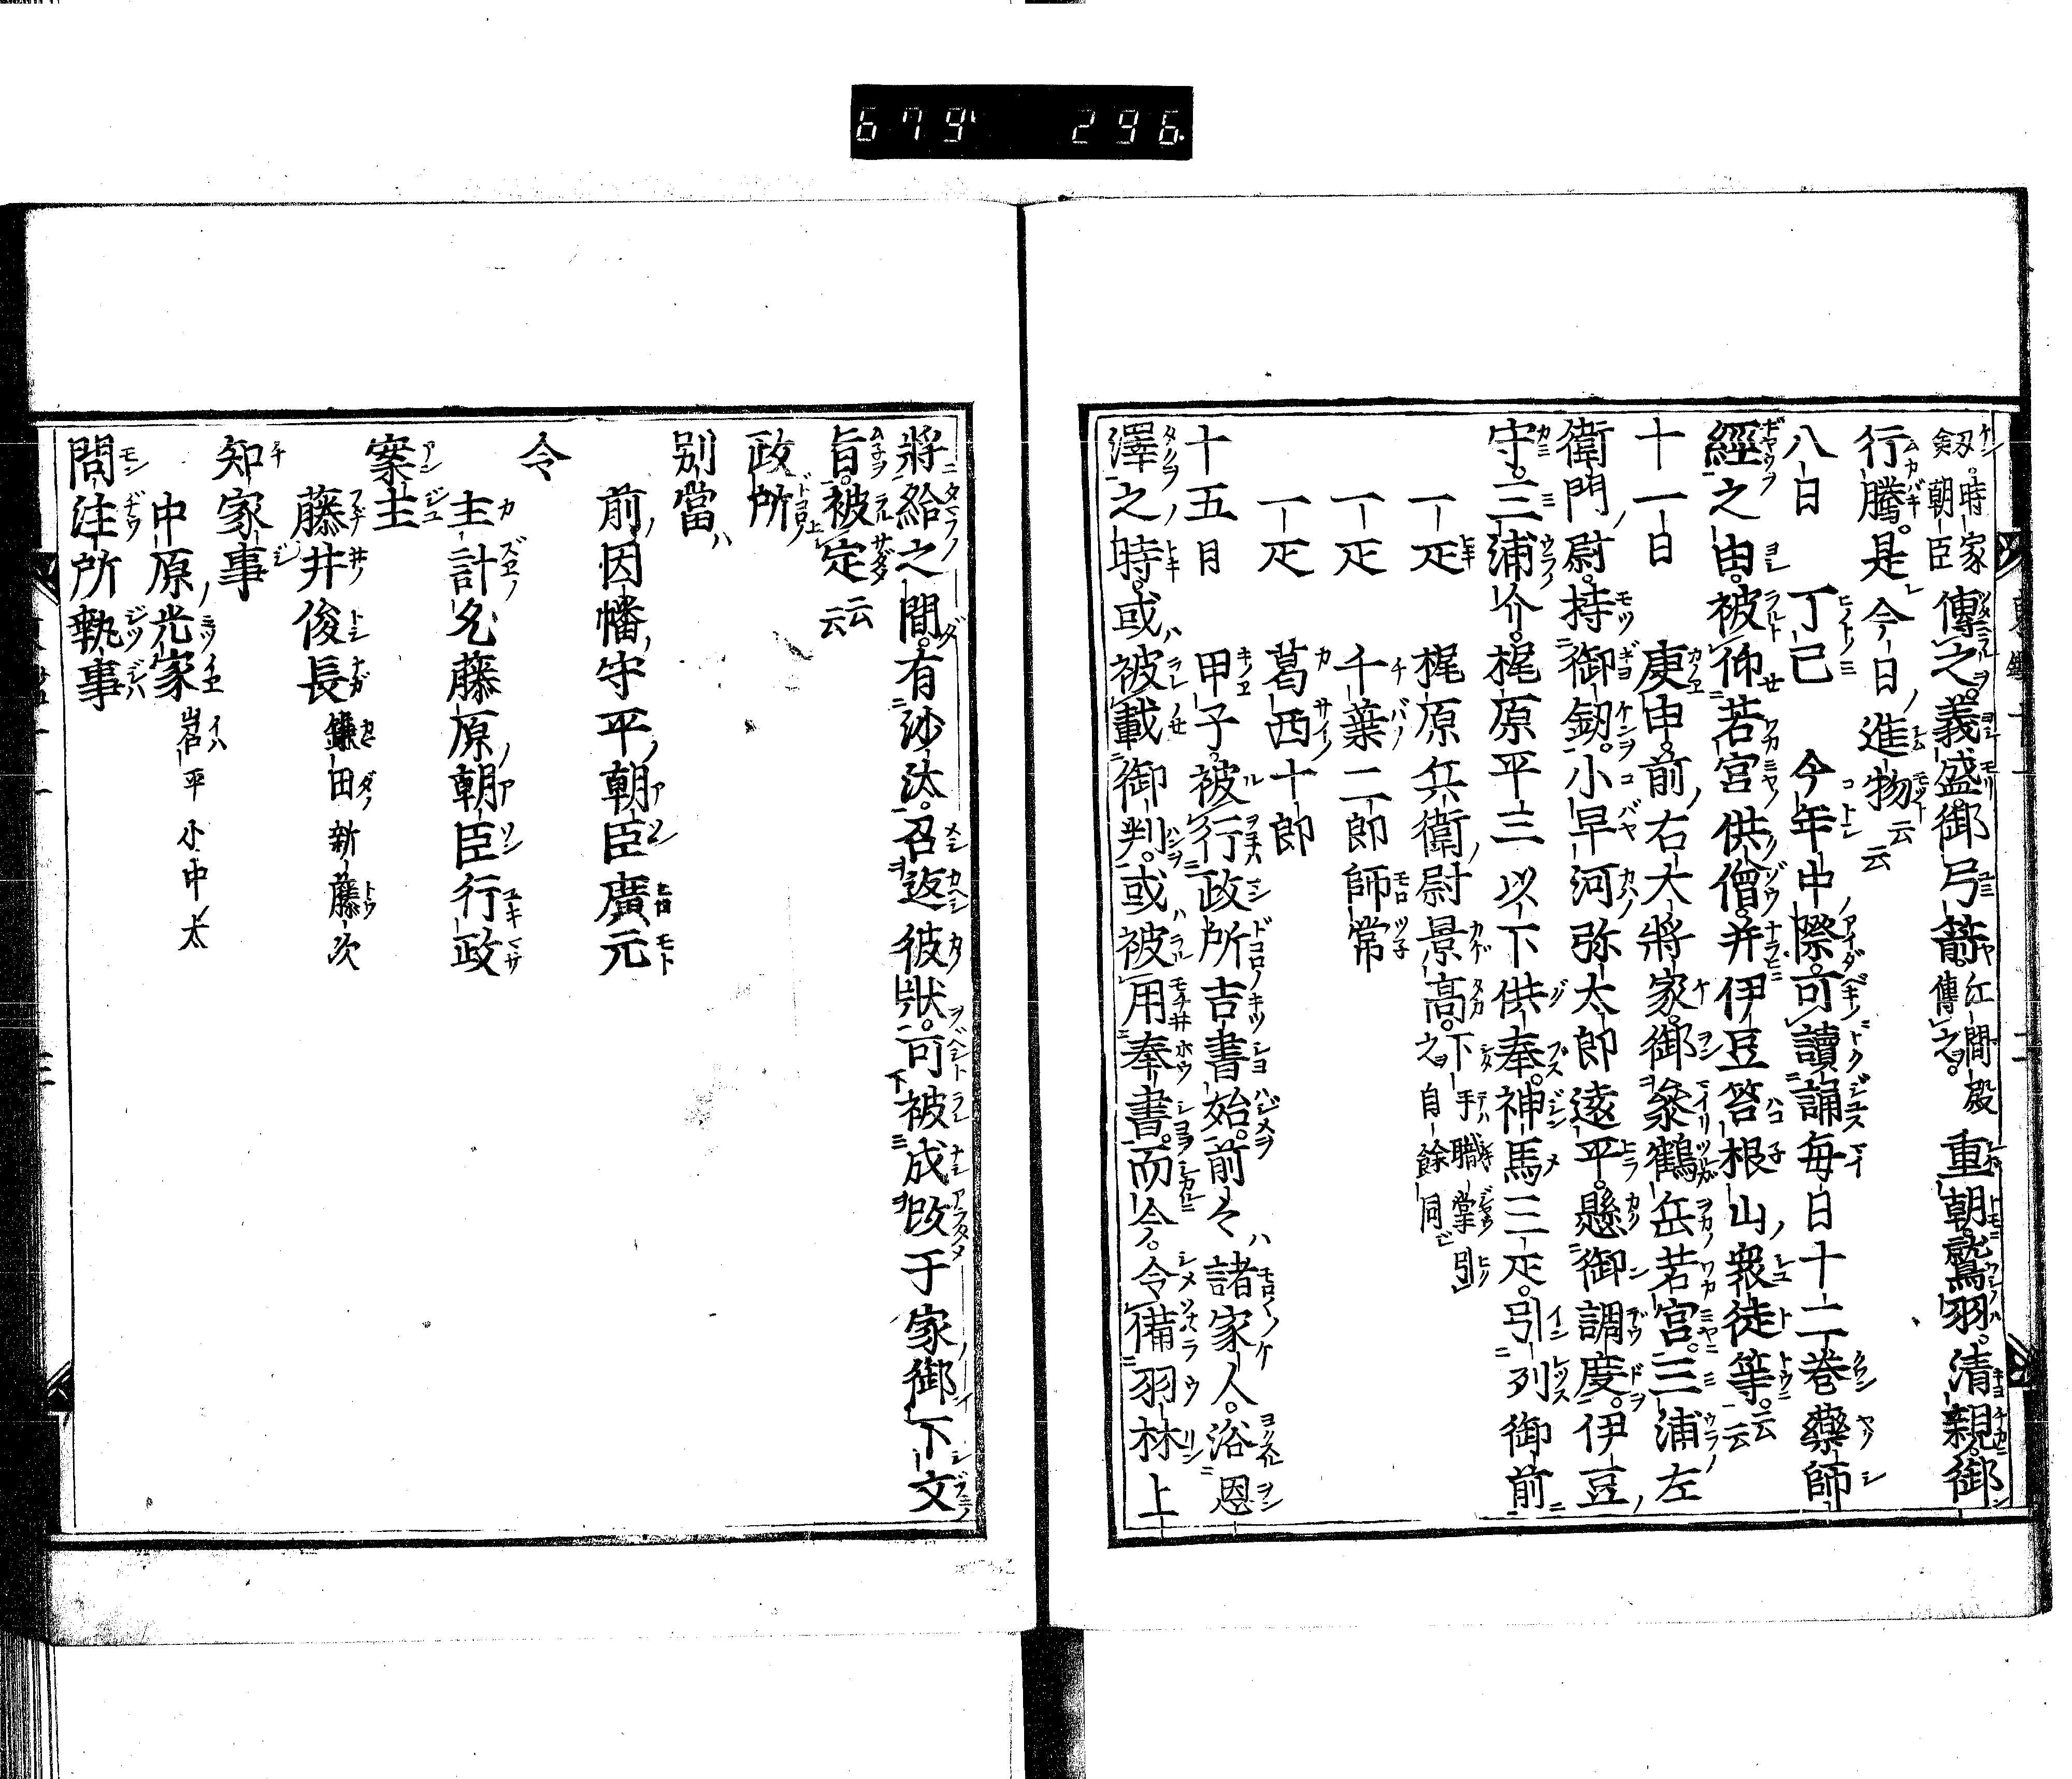 679 296
劔。時家朝臣傳之。義盛。御弓箭。江間殿傳之。重朝。鷲羽。清親。御
行騰。是今日進物云云
八日 丁巳 今年中際。可讀誦毎日十二巻藥師
經之由。被仰若宮供僧。并伊豆筥根山衆徒等。云云
十一日 庚申。前右大將家。御參鶴岳若宮。三浦左
衛門尉。持御劔。小早河弥太郎遠平。懸御調度。伊豆
守。三浦介。梶原平三以下供奉。神馬三疋。引列御前
一疋 梶原兵衛尉景高。下手職掌引之自餘同
一疋 千葉二郎師常
一疋 葛西十郎
十五日 甲子。被行政所吉書始。前々諸家人。浴恩
澤之時。或被載御判。或被用奉書。而今。令備羽林上
將給之間。有沙汰。召返彼狀。可被成改于家御下文
旨。被定云云
政所
別當
前因幡守平朝臣廣元
令
主計允藤原朝臣行政
案主
藤井俊長 鎌田新藤次
知家事
中原光家 岩平小中太
問注所執事